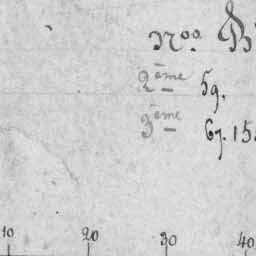 Nos. B
2ème 59.
3ème 67.15
10 20 30 40